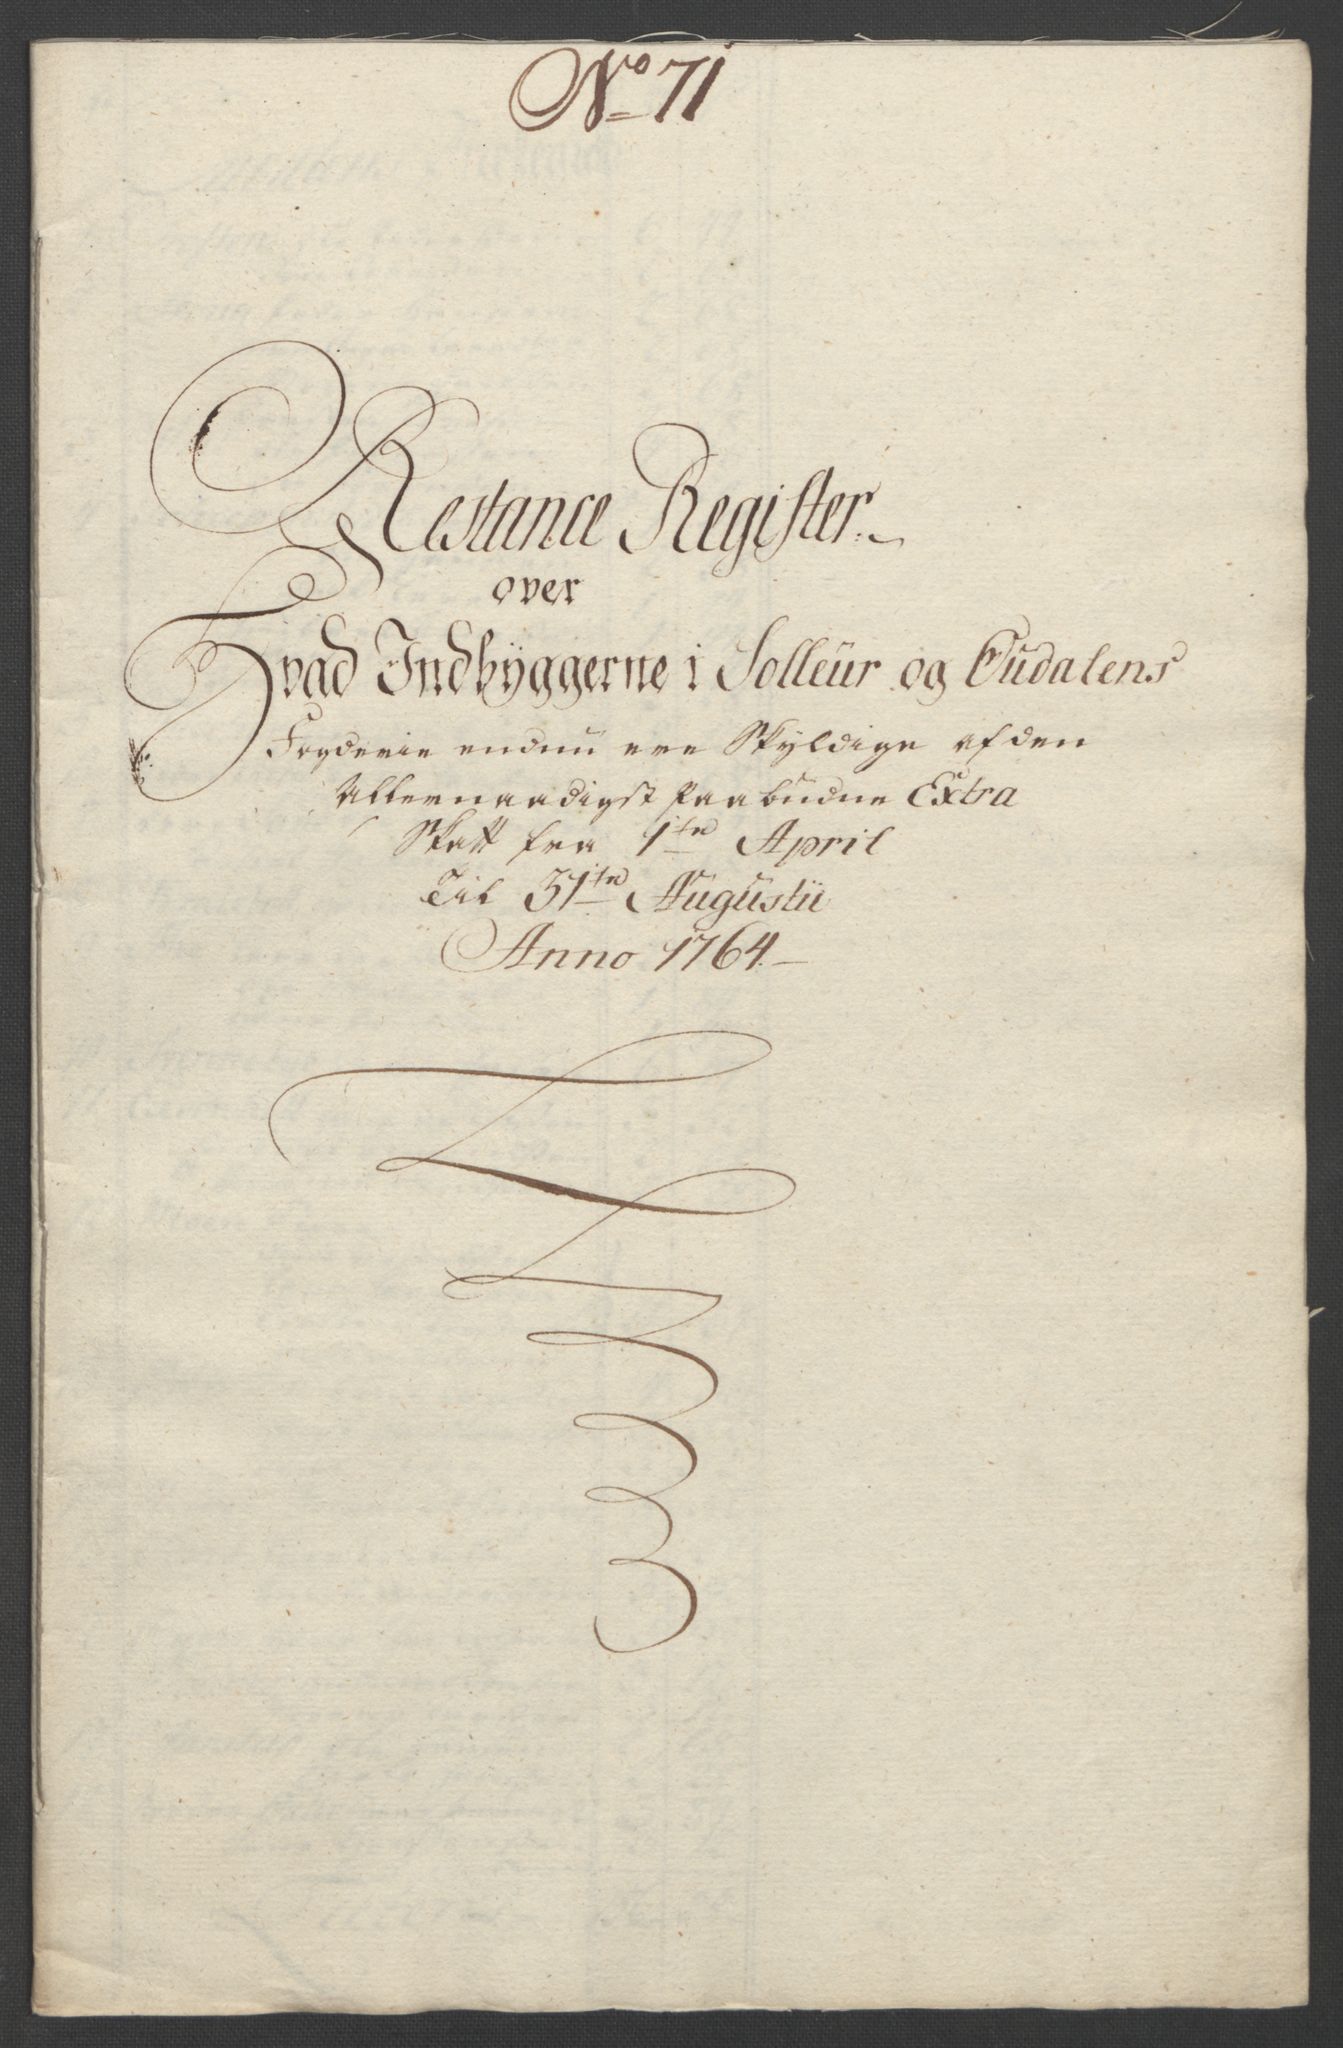 No 71
Restance Register
over
Hvad Indbyggerne i Solleür og Oudalens
Fogderie endnu ere Skyldige af den
Allernaadigst Paabudne Extra
Skatt fra 1te April
Til 31te Augustii
Anno 1764